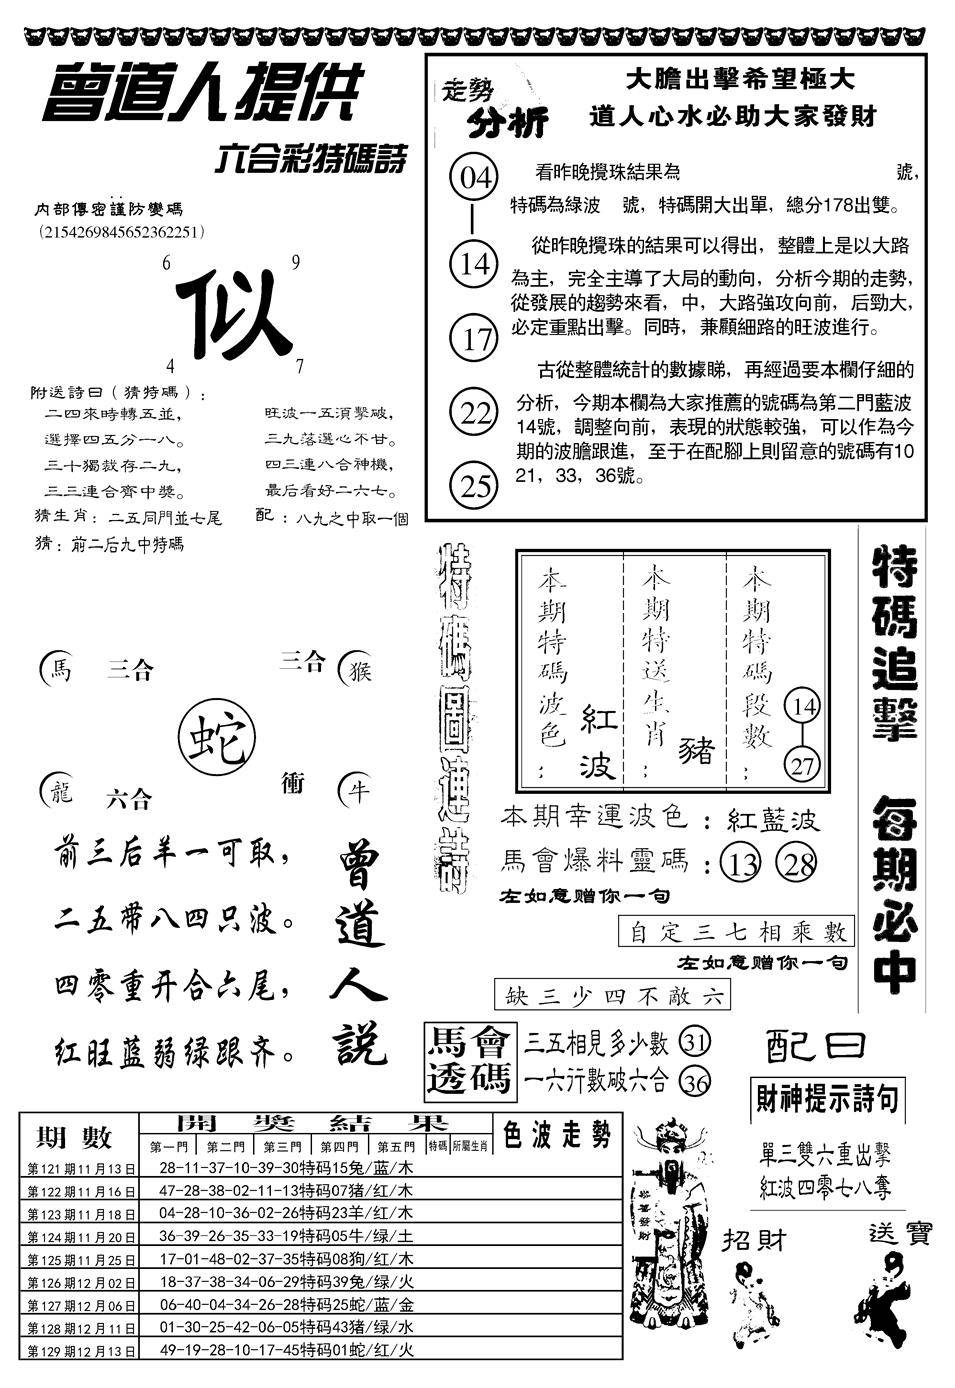 曾道人提供
六合彩特碼詩
內部傳密謹防變碼
（2154269845652362251）
6 9
似
4 7
附送詩曰（猜特碼）：
二四來時轉五並， 旺波一五須擊破，
選擇四五分一八。 三九落選心不甘。
三十獨裁存二九， 四三連八合神機，
三三連合齊中獎。 最后看好二六七。
猜生肖：二五同門並七尾 配：八九之中取一個
猜：前二后九中特碼
走勢
分析
大膽出擊希望極大
道人心水必助大家發財
04
14
17
22
25
看昨晚攪珠結果為 號，
特碼為綠波 號，特碼開大出單，總分178出雙。
從昨晚攪珠的結果可以得出，整體上是以大路
為主，完全主導了大局的動向，分析今期的走勢，
從發展的趨勢來看，中，大路強攻向前，后勁大，
必定重點出擊。同時，兼顧細路的旺波進行。
古從整體統計的數據睇，再經過要本欄仔細的
分析，今期本欄為大家推薦的號碼為第二門藍波
14號，調整向前，表現的狀態較強，可以作為今
期的波膽跟進，至于在配腳上則留意的號碼有10
21，33，36號。
馬 三合 三合 猴
蛇
龍 六合 衝 牛
前三后羊一可取，
二五带八四只波。
四零重开合六尾，
红旺蓝弱绿跟齐。
曾道人説
特碼圖連詩
本期特碼波色：
紅波
本期特送生肖：
豬
本期特碼段數：
14
27
本期幸運波色：紅藍波
馬會爆料靈碼：13 28
左如意赠你一句
自定三七相乘數
左如意赠你一句
缺三少四不敵六
特碼追擊 每期必中
馬會透碼
三五相見多少數 31
一六行數破六合 36
配曰
財神提示詩句
單三雙六重出擊
紅波四零七八奪
招財
送寶
恭喜發財
期數 開獎結果 色波走勢
第一門 第二門 第三門 第四門 第五門 特碼 所屬生肖
第121期11月13日 28-11-37-10-39-30特码15兔/蓝/木
第122期11月16日 47-28-38-02-11-13特码07猪/红/木
第123期11月18日 04-28-10-36-02-26特码23羊/红/木
第124期11月20日 36-39-26-35-33-19特码05牛/绿/土
第125期11月25日 17-01-48-02-37-35特码08狗/红/木
第126期12月02日 18-37-38-34-06-29特码39兔/绿/火
第127期12月06日 06-40-04-34-26-28特码25蛇/蓝/金
第128期12月11日 01-30-25-42-06-05特码43猪/绿/水
第129期12月13日 49-19-28-10-17-45特码01蛇/红/火